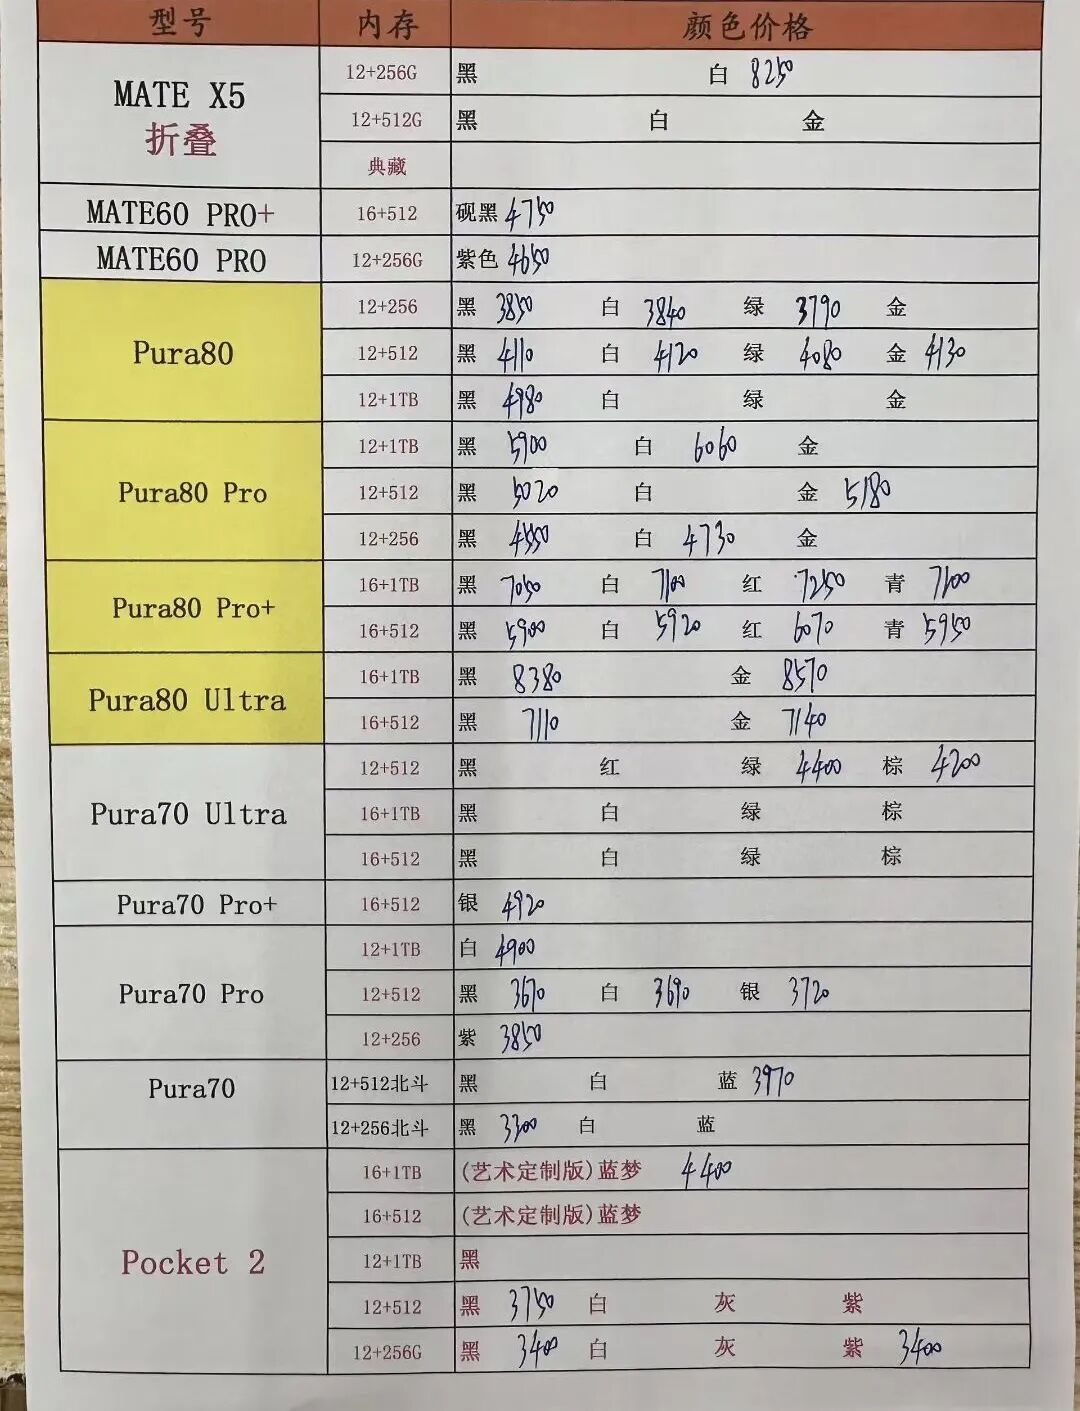 型号 内存 颜色价格
MATE X5 折叠 12+256G 黑 白 8250
12+512G 黑 白 金
典藏
MATE60 PRO+ 16+512 砚黑 4750
MATE60 PRO 12+256G 紫色 4650
Pura80 12+256 黑 3850 白 3840 绿 3790 金
12+512 黑 4110 白 4120 绿 4080 金 4130
12+1TB 黑 4980 白 绿 金
Pura80 Pro 12+1TB 黑 5900 白 6060 金
12+512 黑 5020 白 金 5180
12+256 黑 4550 白 4730 金
Pura80 Pro+ 16+1TB 黑 7050 白 7100 红 7250 青 7200
16+512 黑 5900 白 5920 红 6070 青 5950
Pura80 Ultra 16+1TB 黑 8380 金 8570
16+512 黑 7110 金 7140
Pura70 Ultra 12+512 黑 红 绿 4400 棕 4200
16+1TB 黑 白 绿 棕
16+512 黑 白 绿 棕
Pura70 Pro+ 16+512 银 4920
Pura70 Pro 12+1TB 白 4900
12+512 黑 3670 白 3690 银 3720
12+256 紫 3850
Pura70 12+512北斗 黑 白 蓝 3970
12+256北斗 黑 3300 白 蓝
Pocket 2 16+1TB (艺术定制版)蓝梦 4400
16+512 (艺术定制版)蓝梦
12+1TB 黑
12+512 黑 3750 白 灰 紫
12+256G 黑 3400 白 灰 紫 3400